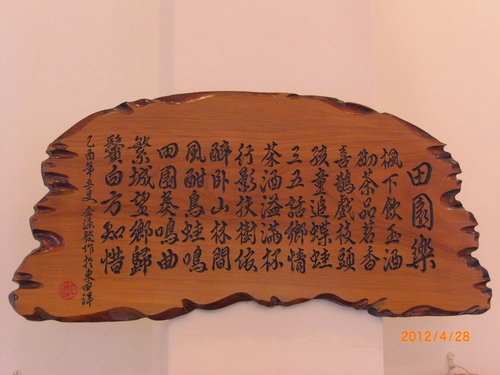 田園樂
楓下飲玉酒
初茶品茗香
喜鵲戲枝頭
孩童追蝶蛙
三五話鄉情
茶酒溢滿杯
行影扶樹依
醉卧山林間
風酣鳥蛙鳴
田園奏鳴曲
繁城望鄉歸
鬢白方知惜
乙酉年立夏 金源發作於東田洋
2012/4/28